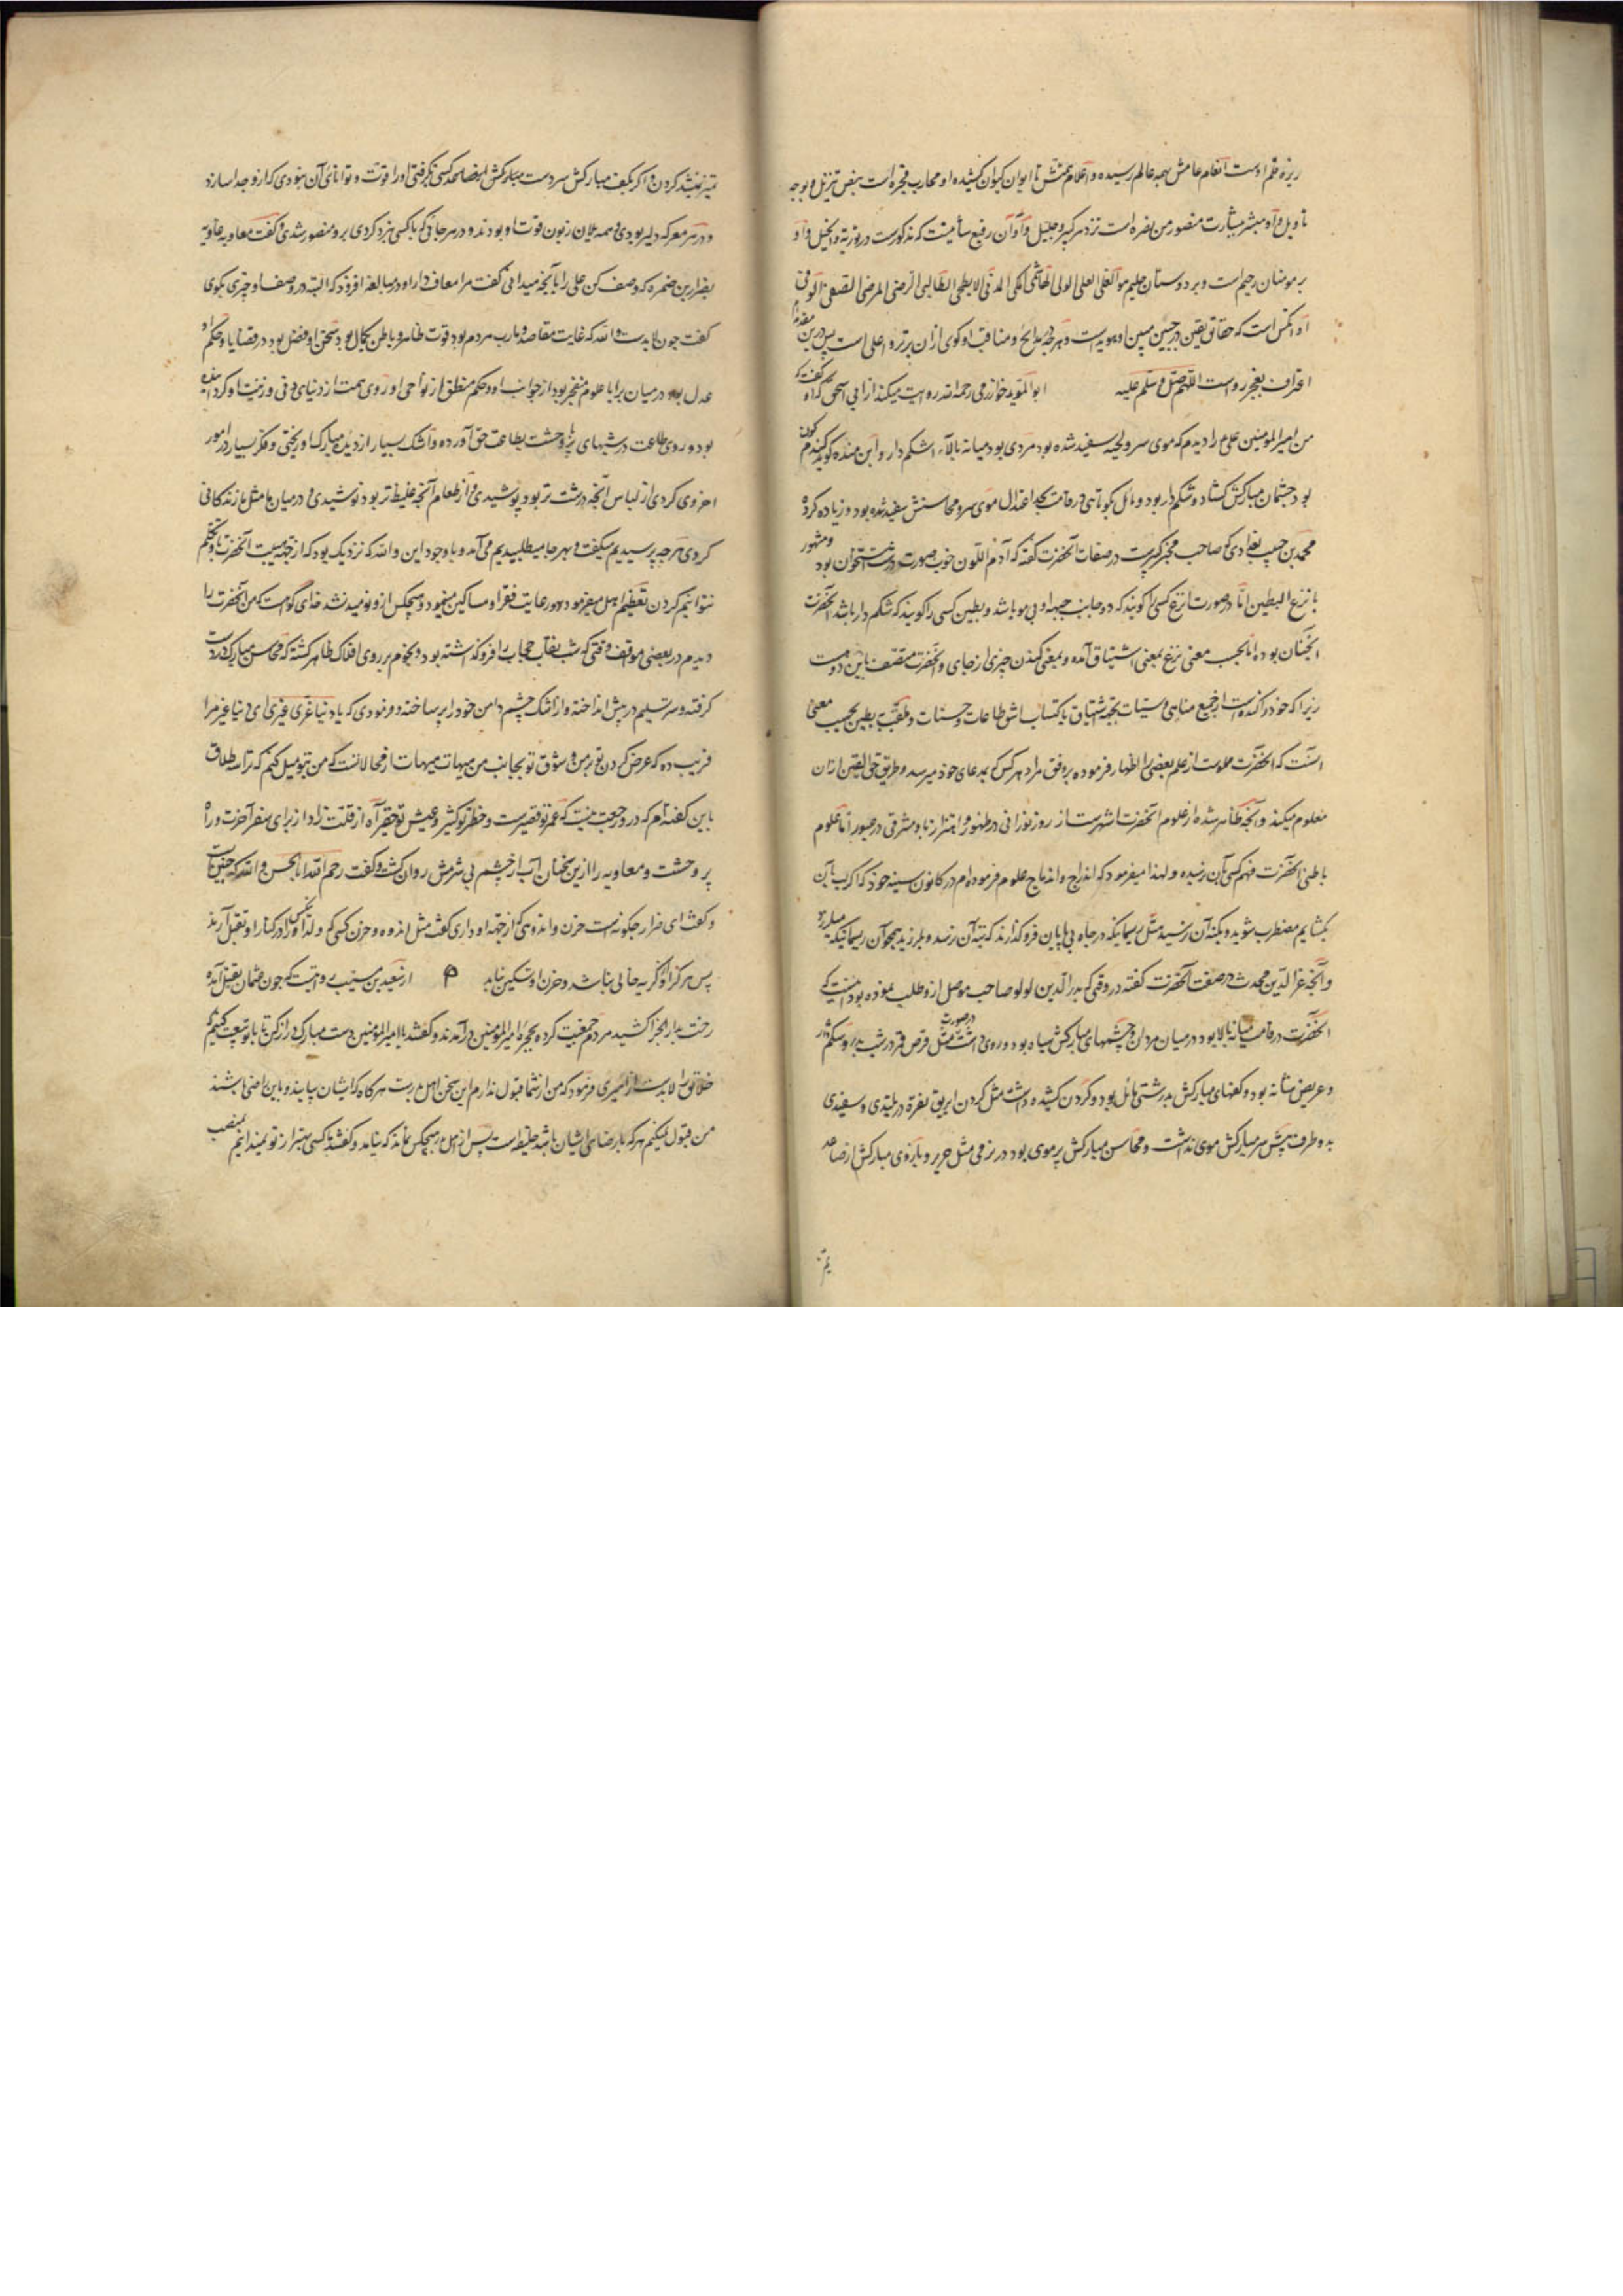 ریزهٔ قلم اوست انعام عامش بهمه عالم رسیده و اعلام تا ایوان کیوان کشیده او محارب فجره است بنص تنزیل و بوجه
تاویل و او مبشر بشارت منصور من نصره است نزد هر کبیر و جلیل و او آن رفیع که مذکورست در توریة و انجیل و او
بر مومنان رحیم است و بر دوستان حلیم العلی الولی الهاشمی المکی المدنی الابطحی الطالبی الرضی المرضی الوفی
است که حقایق یقین در جبین مبین او هویداست و هرچه مدایح و مناقب او کوی ازان برتر و اعلی است پس درین مقدمه
اعتراف بعجز رواست اللهم صل و سلم علیه ابو المؤید خوارزمی رحمه الله روایت میکند از ابی اسحق که او گفت که
من امیر المؤمنین علی را دیدم که موی سر و لحیه سفید شده بود مردی بود میانه بالا شکم دار و ابن منده کوید گندم کون
بود چشمان مبارکش کشاده و شکم دار بود و مایل بکوتاهی در قامت بحد اعتدال موی سر و محاسنش سفید شده بود و زیاده کرده
محمد بن حبیب بغدادی که صاحب محبر کبیرست در صفات آنحضرت گفته که آدم اللون خوب صورت درشت استخوان بود و مشهور
بانزع البطین اما در صورت انزع کسی را کویند که دو جانب جبهه او بی مو باشد و بطین کسی را کویند که شکم دار باشد آنحضرت
آنچنان بوده اما بحسب معنی نزع بمعنی اشتیاق آمده و بمعنی کندن چیزی از جای و آنحضرت متصف باین دو هست
زیرا که خود را کنده است از جمیع مناهی و سیئات بجهة اشتیاق باکتساب طاعات و حسنات و ملقب ببطین بحسب معنی
آنست که آنحضرت مملوست از علم بعضی را اظهار فرموده بر وفق مراد هر کس که بمدعای خود میرسد و طریق حق الیقین ازان
معلوم میکند و آنچه ظاهر شده از علوم آنحضرت اشهرست از روز نورانی در ظهور و مشرقی در عبور اما علوم
باطنی آنحضرت فهم کسی بآن نرسیده و لهذا میفرمود که اندراج و اندماج علوم فرموده‌ام در کانون سینه خود که اگر لب بآن
بکشایم مضطرب شوید و بکنه آن نرسید مثل ریسمانیکه در چاه بی پایان فروگذارند که بته آن نرسد و بلرزید همچو آن ریسمانیکه میلرزد
و آنچه عز الدین محدث در صفت آنحضرت گفته در وقتی که بدر الدین لولو صاحب موصل ازو طلب نموده بود اینست که
آنحضرت در قامت میانه بالا بود در میان مردان و چشمهای مبارکش سیاه بود و روی داشت در صورت مثل قرص قمر در شب بدر و شکم دار
و عریض شانه بود و کفهای مبارکش بدرشتی مائل بود و گردن کشیده داشت مثل گردن ابریق نقره در بلندی و سفیدی
بدو طرف پیش سر مبارکش موی نداشت و محاسن مبارکش پر موی بود در نرمی مثل حریر و بازوی مبارکش از ساعد
تمیز نمیشد کردن و اگر بکف مبارکش سر دست کسی بگرفتی او را قوت و توانائی آن نبودی که ازو جدا سازد
و در هر معرکه دلیر بودی و همه یلان زبون قوت او بودند و در هر جائی که با کسی نبرد کردی برو منصور شدی و گفت معاویه
بضرار بن ضمره که وصف کن علی را بآنچه میدانی گفت مرا معاف دار او در مبالغه افزود که البته در وصف او چیزی بکوی
گفت چون لابدست والله که غایت مقاصد و مآرب مردم بود قوت ظاهر و باطن بکمال بود سخن او فصل بود در قضایا و حکم او
عدل بود در میان برایا علوم منفجر بود از جوانب او و حکم منطق از نواحی او روی همت از دنیای دنی و زینت او کردانیده
بود و روی طاعت در شبهای پر وحشت بطاعت حق آورده و اشک بسیار از دیدهٔ مبارک او ریختی و فکر بسیار در امور
اخروی کردی از لباس آنچه درشت تر بود پوشیدی و از طعام آنچه غلیظ تر بود نوشیدی و در میان ما مثل ما زندکانی
کردی هرچه پرسیدیم میگفت و بهر جا میطلبیدیم می آمد و با وجود این والله که نزدیک بود که از جهة هیبت آنحضرت تکلم
نتوانیم کردن تعظیم اهل میفرمود و رعایت فقرا و مساکین مینمود و هیچکس ازو نومید نشد خدای گواهست که من آنحضرت را
دیدم در بعضی مواقف وقتی که شب نقاب حجاب را فروگذاشته بود و نجوم بر روی افلاک ظاهر گشته که محاسن مبارک در دست
گرفته و سر تسلیم در پیش انداخته و از اشک چشم دامن خود را پر ساخته و فرمودی که یا دنیا غری غیری ای دنیا غیر مرا
فریب ده که عرض کردن تو بر من و شوق تو بجانب من هیهات هیهات از محالاتست که من بتو میل کنم که ترا سه طلاق
باین گفته‌ام که درو رجعت نیست که عمر تو قصیرست و خطر تو کثیر و عیش تو حقیر آه از قلت زاد از برای سفر آخرت و راه
پر وحشت و معاویه را ازین سخنان آب از چشم بی شرمش روان گشت و گفت رحم الله ابا الحسن والله که چنین است
و گفت ای ضرار چگونه است حزن و اندوهی که از جهة او داری گفت مثل اندوه و حزن کسی که ولد او را در کنار او بقتل آرند
پس هرگز او از گریه خالی نباشد و حزن او تسکین نیابد از سعید بن مسیب روایتست که چون عثمان بقتل آمده
رخت بدار الجزا کشید مردم جمعیت کرده بحجرهٔ امیر المؤمنین در آمدند و گفتند یا امیر المؤمنین دست مبارک دراز کن تا با تو بیعت کنیم که
خلایق را لابدست از امیری فرمود که من از شما قبول ندارم این سخن اهل بدرست هرگاه که ایشان بیایند و باین راضی باشند
من قبول میکنم هرکه با رضای ایشان باشد خلیفه است پس از اهل بدر هیچکس نماند که نیامد و گفتند کسی بهتر از تو نمیدانیم بمنصب